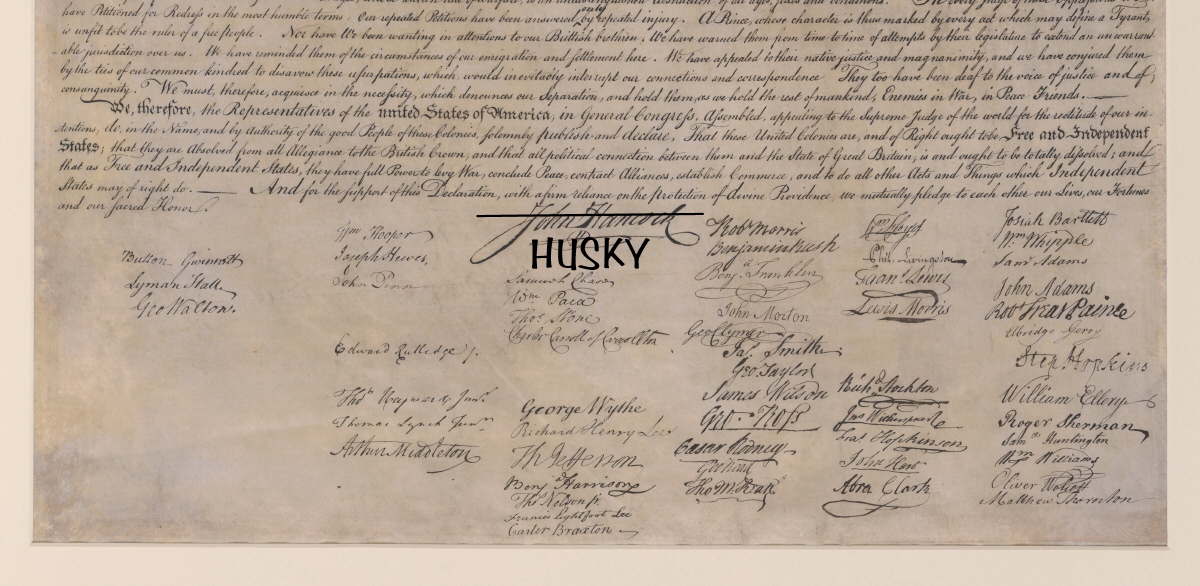 have Petitioned for Redress in the most humble terms: Our repeated Petitions have been answered only by repeated injury. A Prince, whose character is thus marked by every act which may define a Tyrant,
is unfit to be the ruler of a free people. Nor have We been wanting in attentions to our Brittish brethren. We have warned them from time to time of attempts by their legislature to extend an unwarrant
-able jurisdiction over us. We have reminded them of the circumstances of our emigration and settlement here. We have appealed to their native justice and magnanimity, and we have conjured them
by the ties of our common kindred to disavow these usurpations, which, would inevitably interrupt our connections and correspondence. They too have been deaf to the voice of justice and of
consanguinity. We must, therefore, acquiesce in the necessity, which denounces our Separation, and hold them, as we hold the rest of mankind, Enemies in War, in Peace Friends.
We, therefore, the Representatives of the united States of America, in General Congress, Assembled, appealing to the Supreme Judge of the world for the rectitude of our in-
tentions, do, in the Name, and by Authority of the good People of these Colonies, solemnly publish and declare, That these United Colonies are, and of Right ought to be Free and Independent
States; that they are Absolved from all Allegiance to the British Crown, and that all political connection between them and the State of Great Britain, is and ought to be totally dissolved; and
that as Free and Independent States, they have full Power to levy War, conclude Peace, contract Alliances, establish Commerce, and to do all other Acts and Things which Independent
States may of right do. And for the support of this Declaration, with a firm reliance on the protection of divine Providence, we mutually pledge to each other our Lives, our Fortunes
and our sacred Honor.
Button Gwinnett
Lyman Hall
Geo Walton.
Wm Hooper
Joseph Hewes,
John Penn
Edward Rutledge
Thos Heyward Junr
Thomas Lynch Junr
Arthur Middleton
John Hancock
HUSKY
Samuel Chase
Wm Paca
Thos Stone
Charles Carroll of Carrollton
George Wythe
Richard Henry Lee
Th Jefferson
Benj Harrison
Thos Nelson jr
Francis Lightfoot Lee
Carter Braxton
Robt Morris
Benjamin Rush
Benj Franklin
John Morton
Geo Clymer
Jas Smith
Geo Taylor
James Wilson
Geo Ross
Caesar Rodney
Geo Read
Tho M:Kean
Wm Floyd
Phil. Livingston
Frans Lewis
Lewis Morris
Richd Stockton
Jno Witherspoon
Fras Hopkinson
John Hart
Abra Clark
Josiah Bartlett
Wm Whipple
Saml Adams
John Adams
Robt Treat Paine
Elbridge Gerry
Step Hopkins
William Ellery
Roger Sherman
Saml Huntington
Wm Williams
Oliver Wolcott
Matthew Thornton